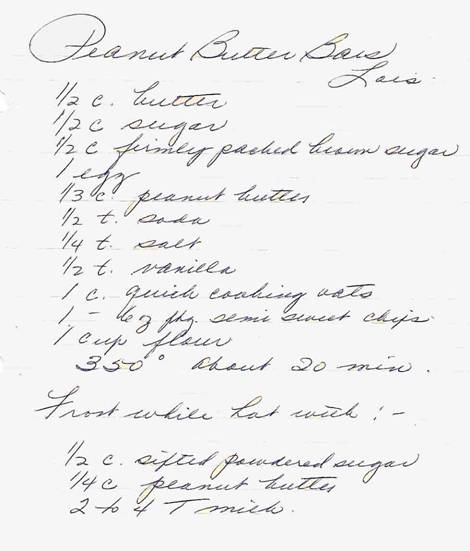 Peanut Butter Bars
Lois.
1/2 c. butter
1/2 c sugar
1/2 c firmley packed brown sugar
1 egg
1/3 c. peanut butter
1/2 t. soda
1/4 t. salt
1/2 t. vanilla
1 c. quick cooking oats
1 - 6 oz pkg. semi sweet chips.
1 cup flour
350° about 20 min.
Frost while hot with : -
1/2 c. sifted powdered sugar
1/4 c peanut butter
2 to 4 T milk.